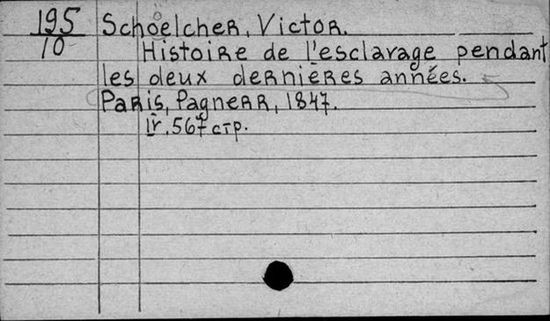 195
10
Schoelcher, Victor.
Histoire de l'esclavage pendant
les deux dernières années.
Paris, Pagnerr, 1847.
567 стр.